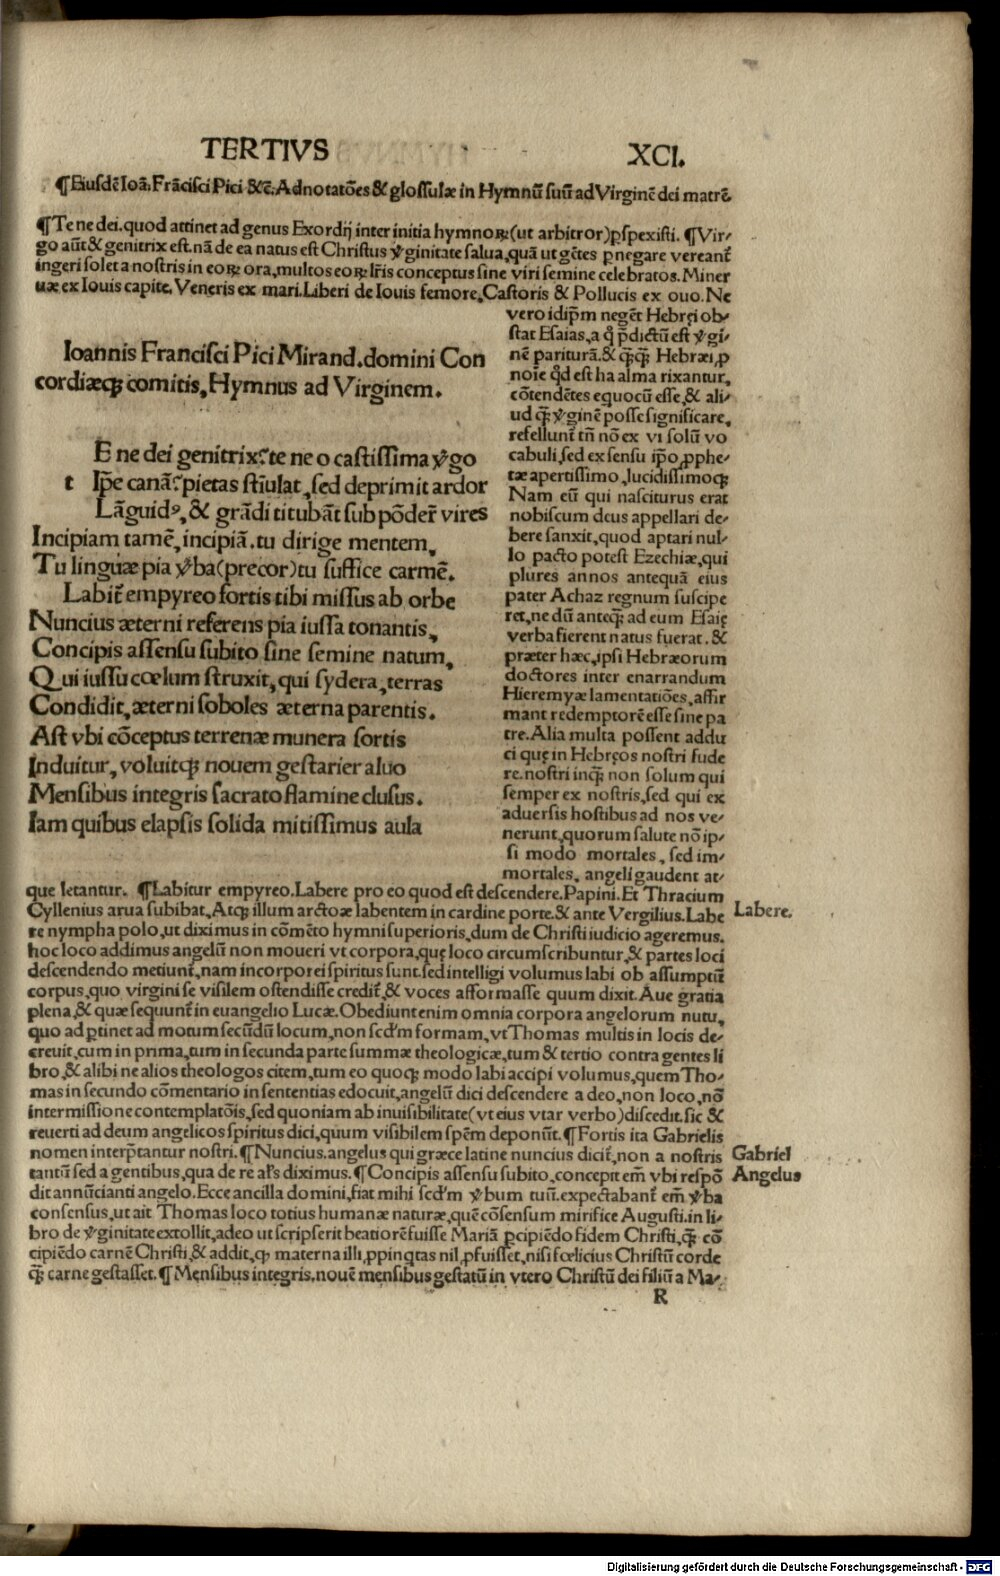 TERTIVS XCI.
¶Eiusdē Ioā. Frācisci Pici &c̄. Adnotatōes & glossulæ in Hymnū suū ad Virginē dei matrē.
¶Te ne dei. quod attinet ad genus Exordij inter initia hymnoꝝ (ut arbitror) ꝑspexisti. ¶Vir-
go aūt & genitrix est. nā de ea natus est Christus v̾ginitate salua, quā ut gētes ꝑnegare vereanť
ingeri solet a nostris in eoꝝ ora, multos eoꝝ lr̄is conceptus sine viri semine celebratos. Miner
uæ ex Iouis capite. Veneris ex mari. Liberi de Iouis femore. Castoris & Pollucis ex ouo. Ne
vero idip̄m negēt Hebręi ob-
stat Esaias, a q̊ p̄dictū est v̾gi-
nē pariturā. & qꝫqꝫ Hebræi, ꝓ
noīe qd̓ est ha alma rixantur,
cōtendētes equocū esse, & ali-
ud qꝫ v̾ginē posse significare,
refellunť tn̄ nō ex vi solū vo
cabuli, sed ex sensu ip̄o ꝓphe-
tæ apertissimo, lucidissimoqꝫ
Nam eū qui nasciturus erat
nobiscum deus appellari de-
bere sanxit, quod aptari nul-
lo pacto potest Ezechiæ, qui
plures annos antequā eius
pater Achaz regnum suscipe
ret, ne dū anteqꝫ ad eum Esaię
verba fierent natus fuerat. &
præter hæc, ipsi Hebræorum
doctores inter enarrandum
Hieremyæ lamentatiōes, affir
mant redemptorē esse sine pa
tre. Alia multa possent addu
ci quę in Hebręos nostri fude
re. nostri inqꝫ non solum qui
semper ex nostris, sed qui ex
aduersis hostibus ad nos ve-
nerunt, quorum salute nō ip-
si modo mortales, sed im-
mortales, angeli gaudent at-
Ioannis Francisci Pici Mirand. domini Con
cordiæqꝫ comitis, Hymnus ad Virginem.
E ne dei genitrix? te ne o castissima v̾go
t Ip̄e canā? pietas stīulat, sed deprimit ardor
Lāguidꝰ, & grādi titubāt sub pōdeř vires
Incipiam tamē, incipiā. tu dirige mentem,
Tu linguæ pia v̾ba (precor) tu suffice carmē.
Labiť empyreo fortis tibi missus ab orbe
Nuncius æterni referens pia iussa tonantis,
Concipis assensu subito sine semine natum,
Qui iussu cœlum struxit, qui sydera, terras
Condidit, æterni soboles æterna parentis.
Ast vbi cōceptus terrenæ munera sortis
Induitur, voluitqꝫ nouem gestarier aluo
Mensibus integris sacrato flamine clusus.
Iam quibus elapsis solida mitissimus aula
que letantur. ¶Labitur empyreo. Labere pro eo quod est descendere. Papini. Et Thracium
Cyllenius arua subibat, Atqꝫ illum arctoæ labentem in cardine porte. & ante Vergilius. Labe
re nympha polo, ut diximus in cōmēto hymni superioris, dum de Christi iudicio ageremus.
hoc loco addimus angelū non moueri vt corpora, quę loco circumscribuntur, & partes loci
descendendo metiunť, nam incorporei spiritus sunt. sed intelligi volumus labi ob assumptū
corpus, quo virgini se visilem ostendisse crediť, & voces afformasse quum dixit. Aue gratia
plena, & quæ sequunť in euangelio Lucæ. Obediunt enim omnia corpora angelorum nutu,
quo ad ꝑtinet ad motum secūdū locum, non scd̓m formam, vt Thomas multis in locis de-
creuit, cum in prima, tum in secunda parte summæ theologicæ, tum & tertio contra gentes li
bro, & alibi ne alios theologos citem, tum eo quoqꝫ modo labi accipi volumus, quem Tho-
mas in secundo cōmentario in sententias edocuit, angelū dici descendere a deo, non loco, nō
intermissione contemplatōis, sed quoniam ab inuisibilitate (vt eius vtar verbo) discedit. sic &
reuerti ad deum angelicos spiritus dici, quum visibilem spēm deponūt. ¶Fortis ita Gabrielis
nomen interp̄tantur nostri. ¶Nuncius. angelus qui græce latine nuncius diciť, non a nostris
tantū sed a gentibus, qua de re al̓s diximus. ¶Concipis assensu subito, concepit em̄ vbi respō
dit annūcianti angelo. Ecce ancilla domini, fiat mihi scd̓m v̾bum tuū. expectabanť em̄ v̾ba
consensus, ut ait Thomas loco totius humanæ naturæ, quē cōsensum mirifice Augusti. in li-
bro de v̾ginitate extollit, adeo ut scripserit beatiorē fuisse Mariā ꝑcipiēdo fidem Christi, qꝫ cō
cipiēdo carnē Christi, & addit, ꝙ materna illi, ꝓpinqtas nil ꝓfuisset, nisi fœlicius Christū corde
qꝫ carne gestasset. ¶Mensibus integris. nouē mensibus gestatū in vtero Christū dei filiū a Ma-
R
Labere.
Gabriel
Angelus
Digitalisierung gefördert durch die Deutsche Forschungsgemeinschaft - DFG